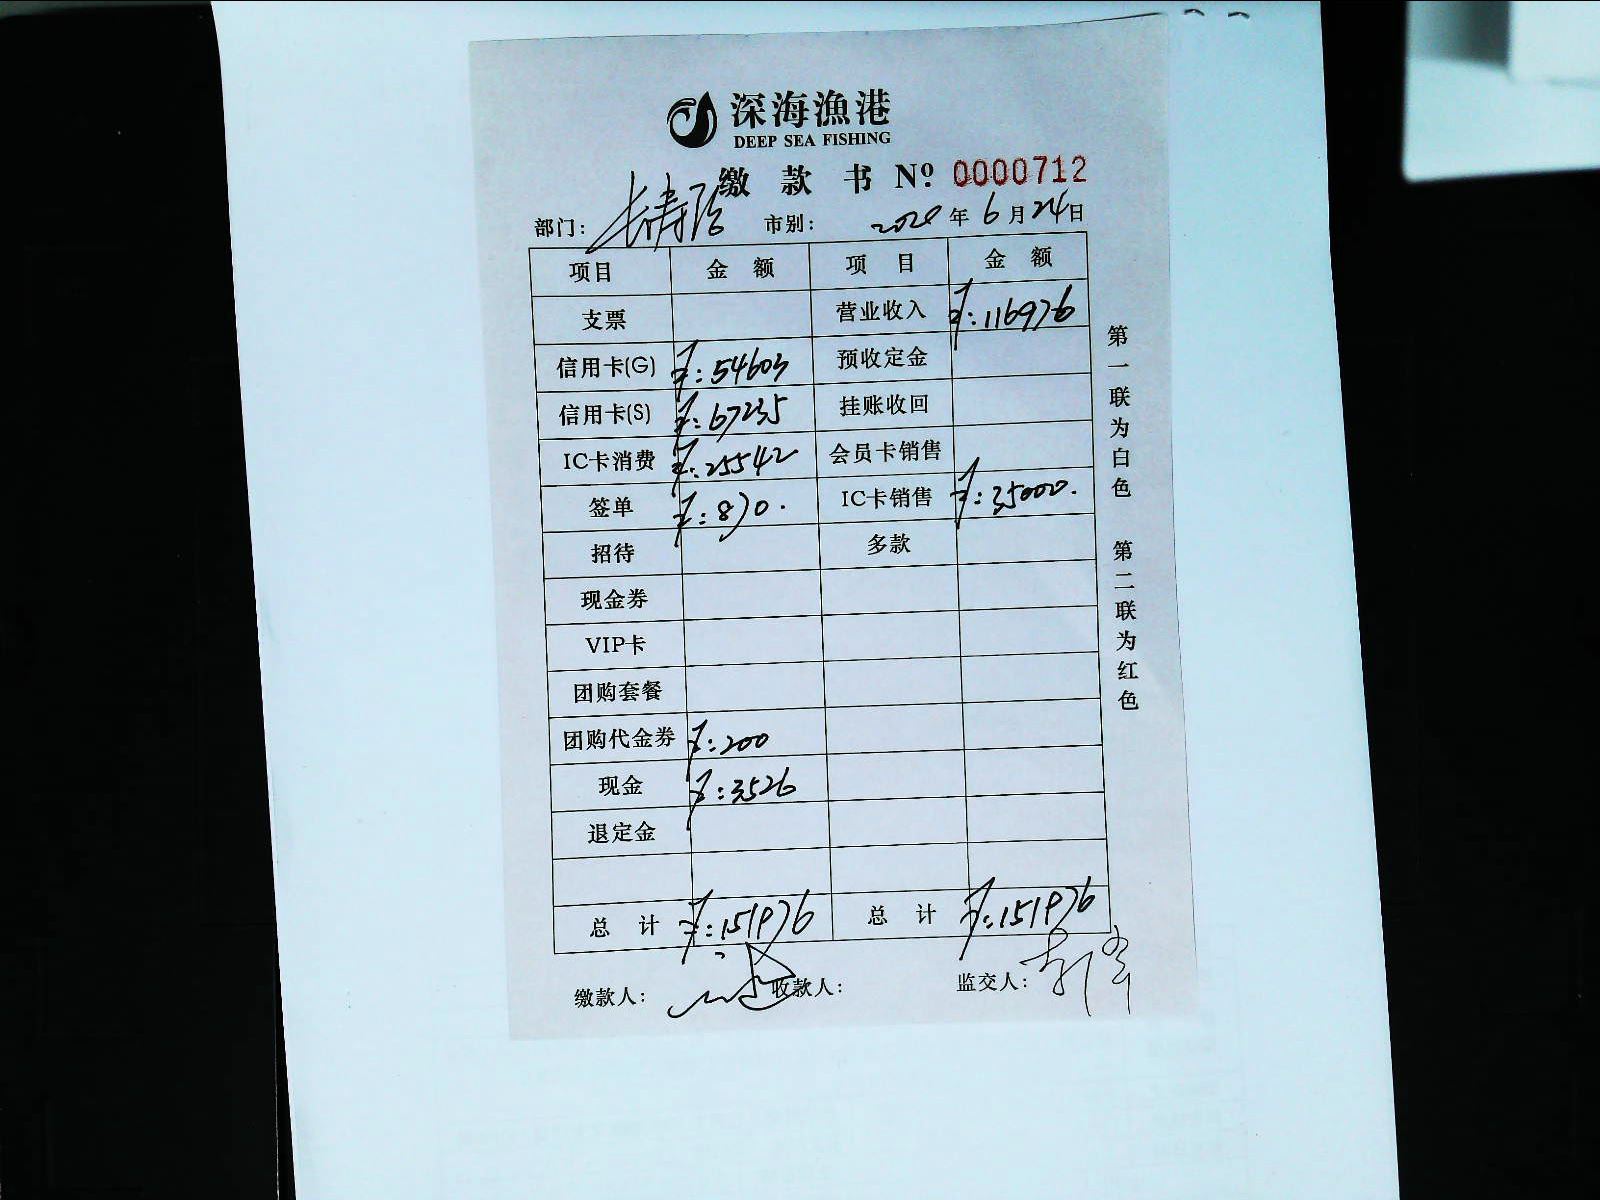 深海渔港
DEEP SEA FISHING
缴款书 Nº 0000712
部门: 长寿路 市别: 2020年6月24日
项目 金额 项目 金额
支票 营业收入 ¥:116976
信用卡(G) ¥:54603 预收定金
信用卡(S) ¥:67235 挂账收回
IC卡消费 ¥:25542 会员卡销售
签单 ¥:870. IC卡销售 ¥:35000.
招待 多款
现金券
VIP卡
团购套餐
团购代金券 ¥:200
现金 ¥:3526
退定金
总计 ¥:151976 总计 ¥:151976
缴款人: 收款人: 监交人:
第一联为白色 第二联为红色